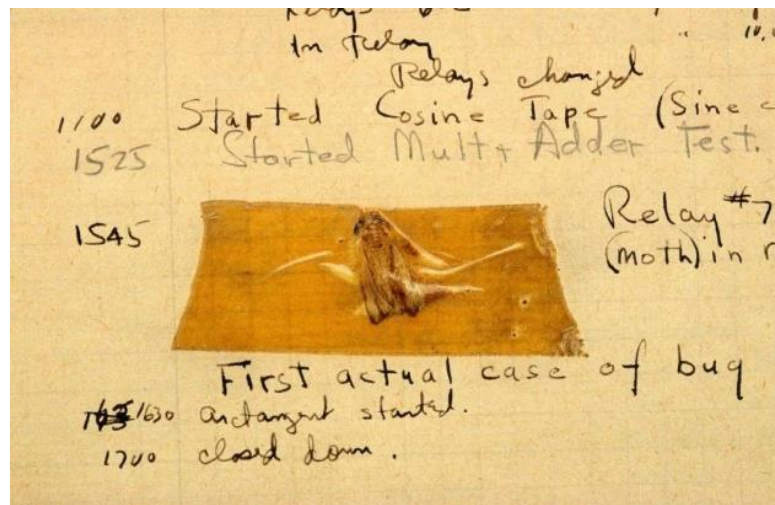 In Relay
Relays changed
1100 Started Cosine Tape (Sine
1525 Started Mult + Adder Test.
1545 Relay #7
(moth) in
First actual case of bug
1630 arctangent started.
1700 closed down.